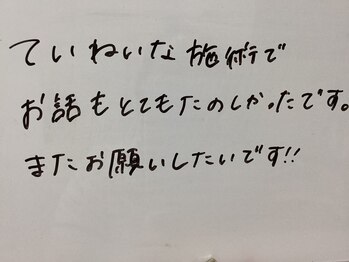 ていねいな施術で
お話もとてもたのしかったです。
またお願いしたいです!!